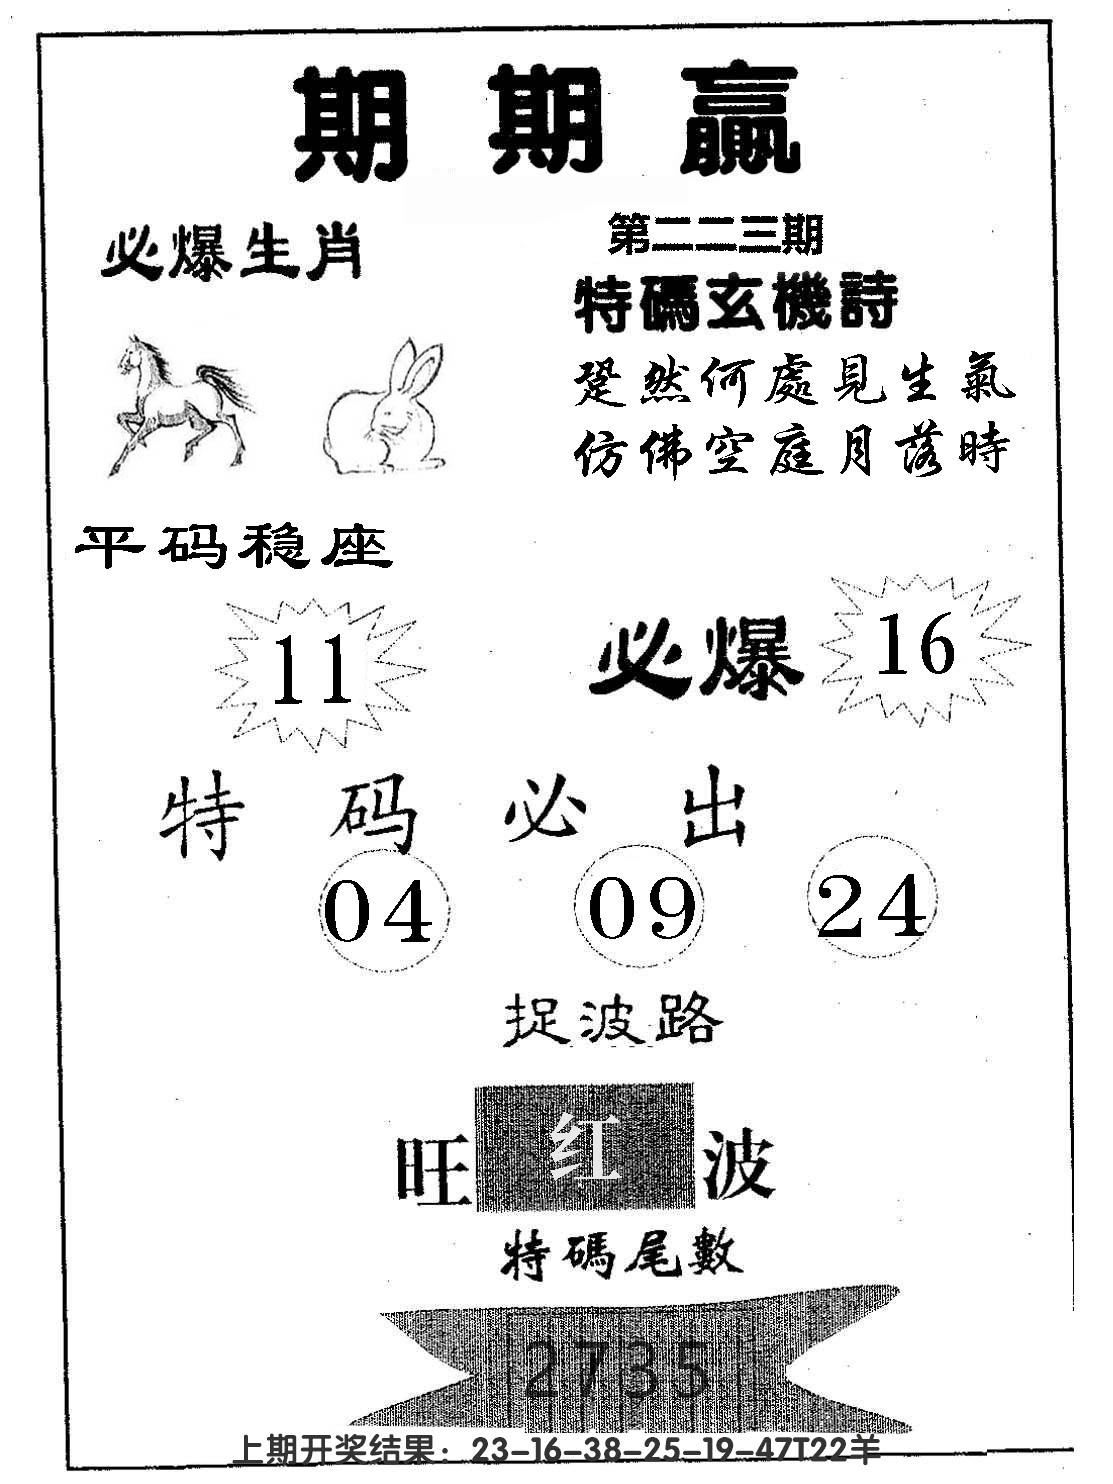 期期赢
必爆生肖
第二二三期
特碼玄機詩
跫然何處見生氣
仿佛空庭月落時
平码稳座
11
必爆 16
特码必出
04 09 24
捉波路
旺红波
特碼尾數
2735
上期开奖结果：23-16-38-25-19-47T22羊